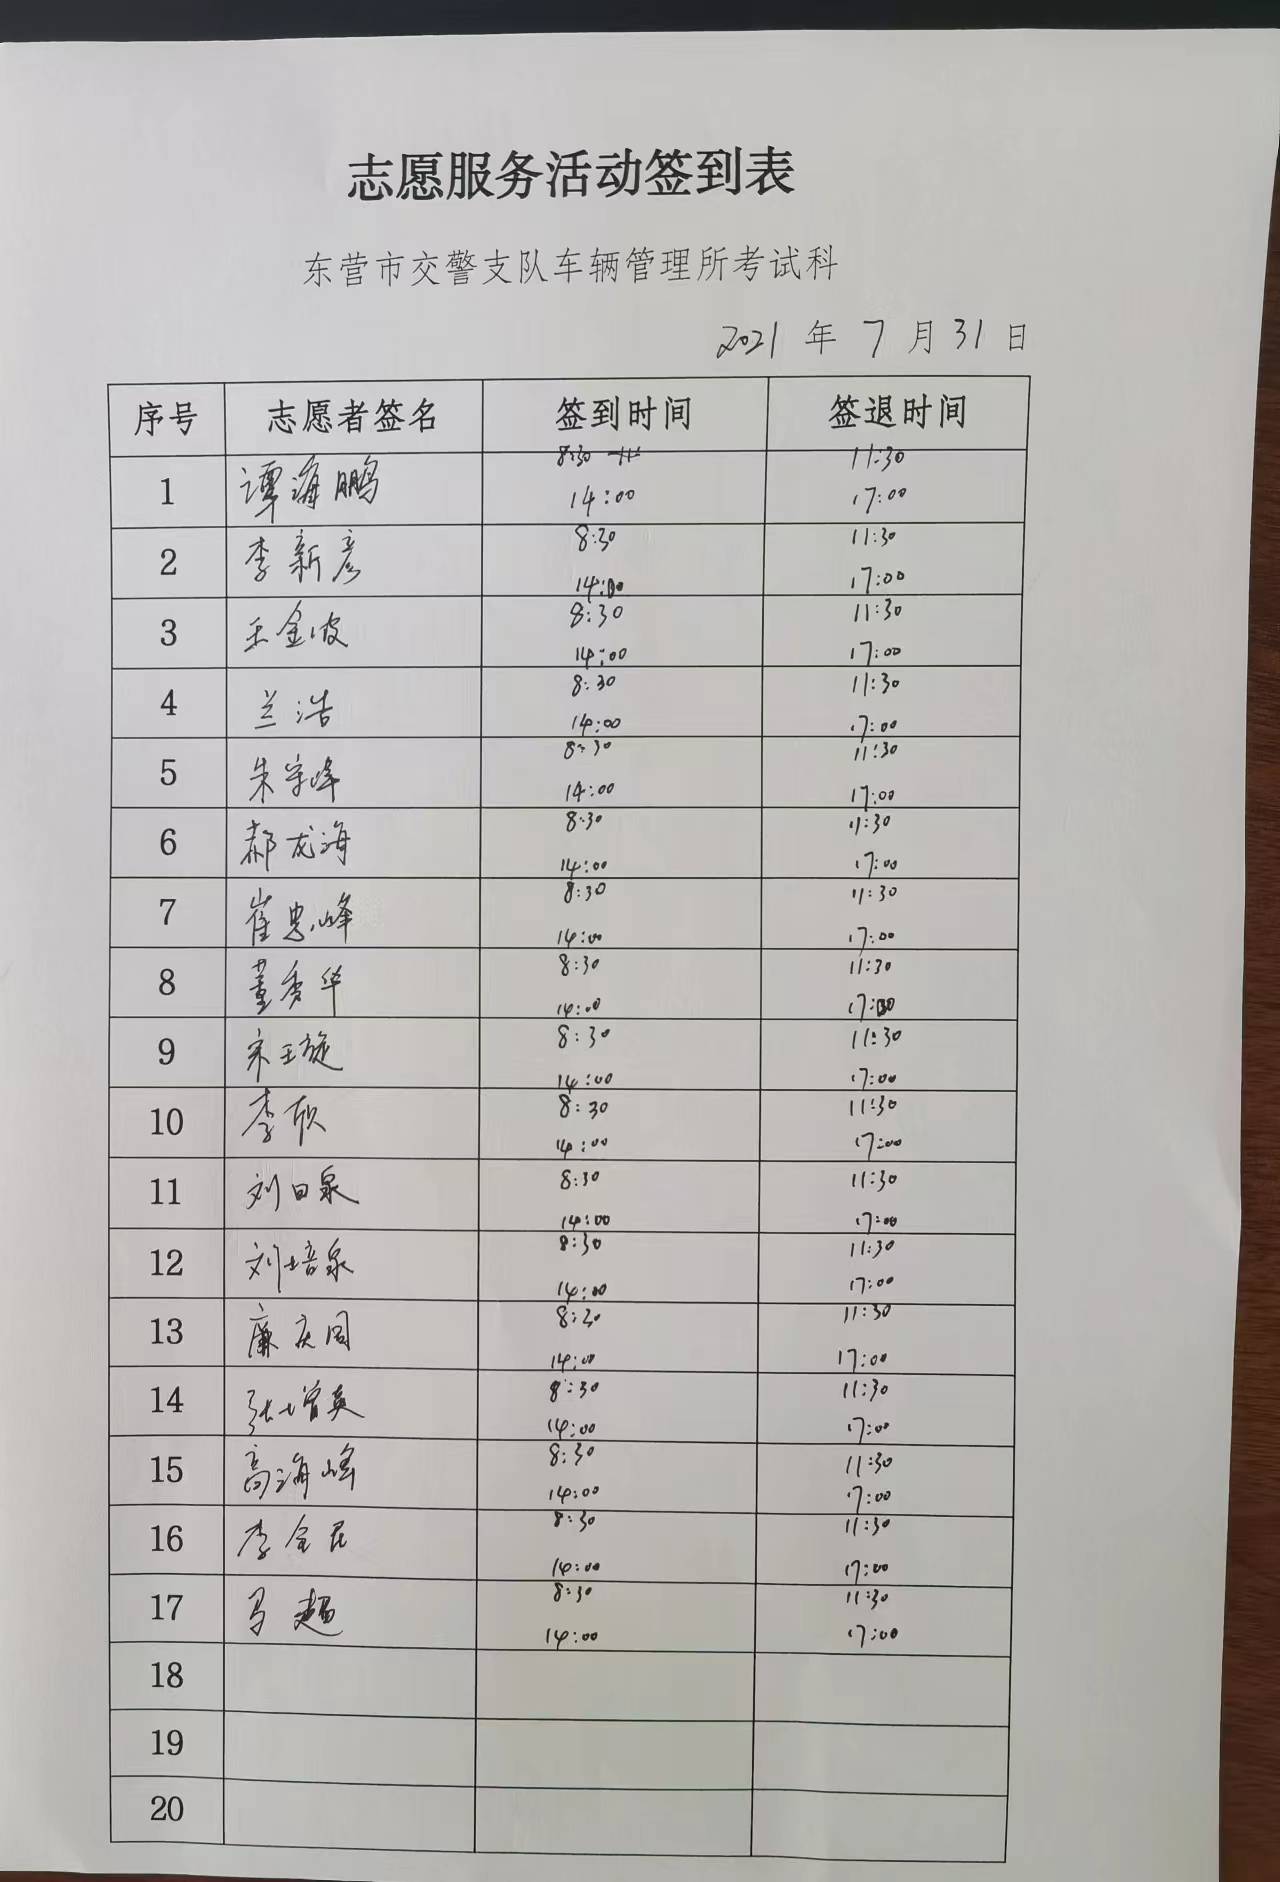 志愿服务活动签到表
东营市交警支队车辆管理所考试科
2021 年 7 月 31 日
序号 志愿者签名 签到时间 签退时间
8:30 11:30
1 谭海鹏
14:00 17:00
8:30 11:30
2 李新彦
14:00 17:00
8:30 11:30
3 王金波
14:00 17:00
8:30 11:30
4 兰浩
14:00 17:00
8:30 11:30
5 朱守峰
14:00 17:00
8:30 11:30
6 郝龙海
14:00 17:00
8:30 11:30
7 崔忠峰
14:00 17:00
8:30 11:30
8 董秀华
14:00
8:30 11:30
9 宋玉璇
14:00 17:00
8:30 11:30
10 李欣
14:00 17:00
8:30 11:30
11 刘曰泉
14:00 17:00
8:30 11:30
12 刘培泉
14:00 17:00
8:30 11:30
13 廉庆国
14:00 17:00
8:30 11:30
14 张增英
14:00 17:00
8:30 11:30
15 高海峰
14:00 17:00
8:30 11:30
16 李金
14:00 17:00
8:30 11:30
17 马超
14:00 17:00
18
19
20